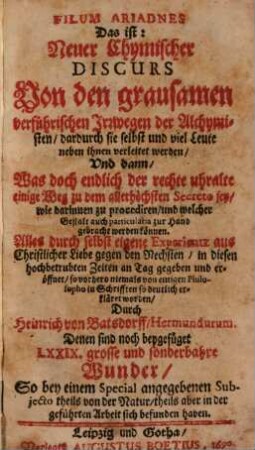 FILUM ARIADNES
Das ist:
Neuer Chymischer
DISCURS
Von den grausamen
verführischen Irrwegen der Alchymi-
sten/ dardurch sie selbst und viel Leute
neben ihnen verleitet werden/
Und dann/
Was doch endlich der rechte uhralte
einige Weg zu dem allerhöchsten Secreto sey/
wie darinnen zu procediren/ und welcher
Gestalt auch particularia zur Hand
gebracht werden können.
Alles durch selbst eigene Experientz aus
Christlicher Liebe gegen den Nechsten/ in diesen
hochbetrubten Zeiten an Tag gegeben und er-
öffnet/ so vorhero niemals von einigen Philo-
sopho in Schrifften so deutlich er-
kläret worden/
Durch
Heinrich von Batsdorff/ Hermundurum.
Denen sind noch beygefüget
LXXIX. grosse und sonderbahre
Wunder/
So bey einem Special angegebenen Sub-
jecto theils von der Natur/ theils aber in der
geführten Arbeit sich befunden haben.
Leipzig und Gotha/
AUGUSTUS BOETIUS,